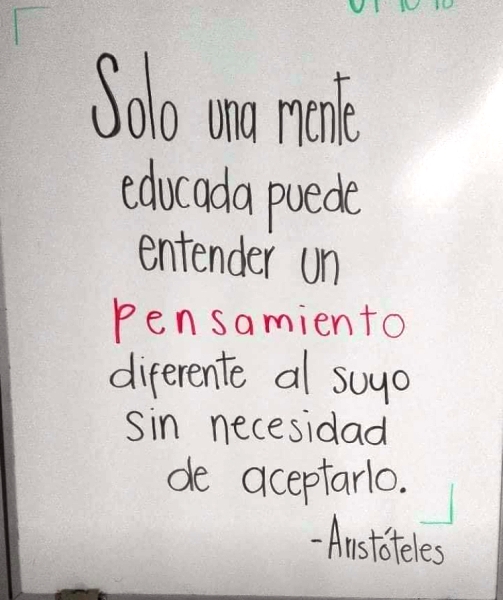 Solo una mente
educada puede
entender un
pensamiento
diferente al suyo
sin necesidad
de aceptarlo.
-Aristóteles